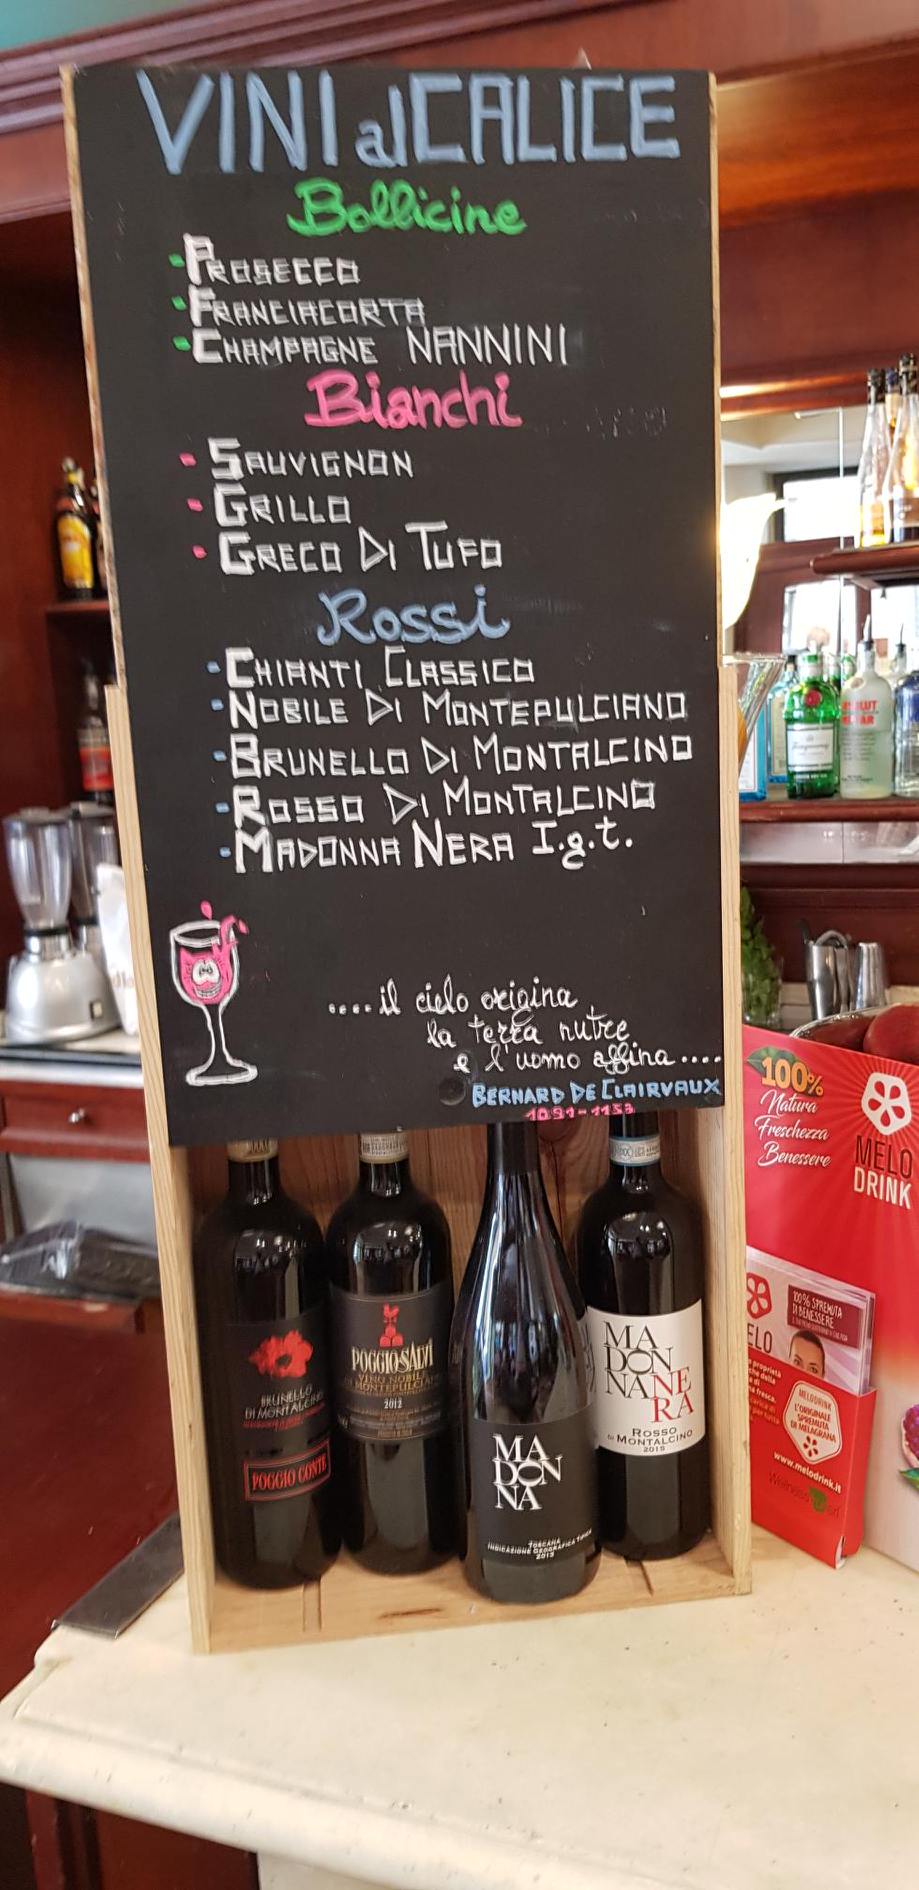 VINI al CALICE
Bollicine
- PROSECCO
- FRANCIACORTA
- CHAMPAGNE NANNINI
Bianchi
- SAUVIGNON
- GRILLO
- GRECO DI TUFO
Rossi
- CHIANTI CLASSICO
- NOBILE DI MONTEPULCIANO
- BRUNELLO DI MONTALCINO
- ROSSO DI MONTALCINO
- MADONNA NERA I.g.t.
....il cielo origina
la terra nutre
e l'uomo affina....
BERNARD DE CLAIRVAUX
1091-1153
BRUNELLO
DI MONTALCINO
POGGIO CONTE
POGGIO SALVI
VINO NOBILE
DI MONTEPULCIANO
2012
MA
DON
NA
TOSCANA
INDICAZIONE GEOGRAFICA TIPICA
2013
MA
DON
NANE
RA
ROSSO
DI MONTALCINO
2015
100%
Natura
Freschezza
Benessere
MELO
DRINK
100% SPREMUTA
DI BENESSERE
MELODRINK
L'ORIGINALE
SPREMUTA
DI MELAGRANA
www.melodrink.it
ABSOLUT